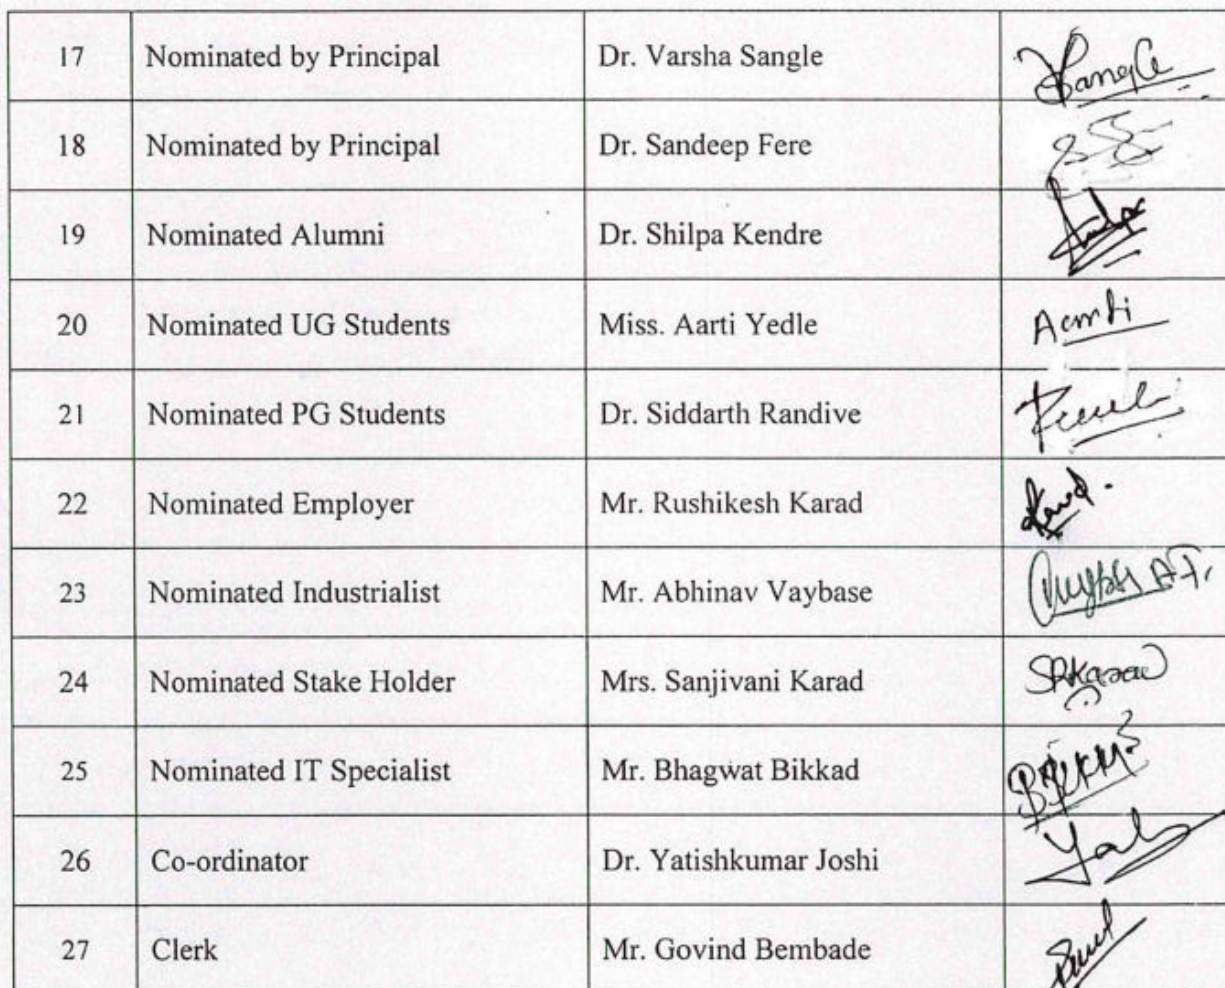 17 Nominated by Principal Dr. Varsha Sangle
18 Nominated by Principal Dr. Sandeep Fere
19 Nominated Alumni Dr. Shilpa Kendre
20 Nominated UG Students Miss. Aarti Yedle
21 Nominated PG Students Dr. Siddarth Randive
22 Nominated Employer Mr. Rushikesh Karad
23 Nominated Industrialist Mr. Abhinav Vaybase
24 Nominated Stake Holder Mrs. Sanjivani Karad
25 Nominated IT Specialist Mr. Bhagwat Bikkad
26 Co-ordinator Dr. Yatishkumar Joshi
27 Clerk Mr. Govind Bembade